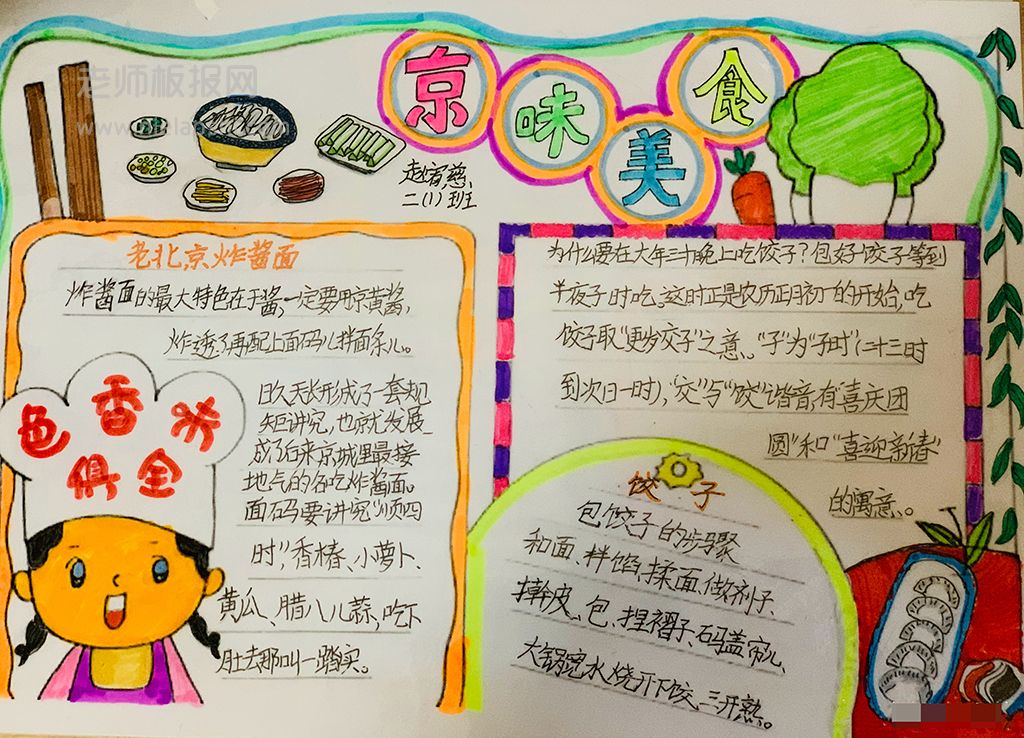 老师板报网
京味美食
二(1)班
老北京炸酱面
炸酱面的最大特色在于酱,一定要用京黄酱,
炸透了再配上面码儿拌面条儿。
日久天长形成了一套规
矩讲究,也就发展
成了后来京城里最接
地气的名吃炸酱面。
面码要讲究“顺四
时”,香椿、小萝卜、
黄瓜、腊八儿蒜,吃下
肚去那叫一踏实。
色香味
俱全
为什么要在大年三十晚上吃饺子?包好饺子等到
半夜子时吃,这时正是农历正月初一的开始,吃
饺子取“更岁交子”之意,“子”为“子时”(二十三时
到次日一时),“交”与“饺”谐音,有“喜庆团
圆”和“喜迎新春”
的寓意。
饺子
包饺子的步骤
和面、拌馅、揉面、做剂子、
擀皮、包、捏褶子、码盖帘儿、
大锅宽水烧开下饺,三开熟。